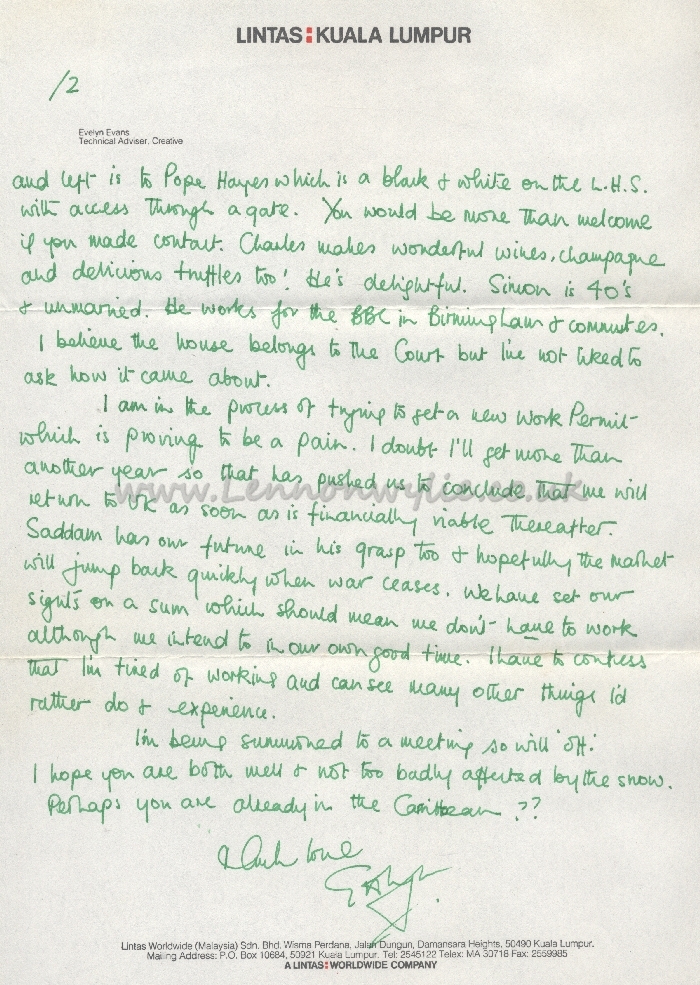 LINTAS:KUALA LUMPUR
/2
Evelyn Evans
Technical Adviser, Creative
and left is to Pope Hayes which is a black & white on the L.H.S.
with access through a gate. You would be more than welcome
if you made contact. Charles makes wonderful wines, champagne
and delicious truffles too! He's delightful. Simon is 40's
& unmarried. He works for the BBC in Birmingham & commutes.
I believe the house belongs to the Court but I've not liked to
ask how it came about.
I am in the process of trying to get a new Work Permit
which is proving to be a pain. I doubt I'll get more than
another year so that has pushed us to conclude that we will
return to UK as soon as is financially viable thereafter.
www.Lennonwylie.co.uk
Saddam has our future in his grasp too & hopefully the market
will jump back quickly when war ceases. We have set our
sights on a sum which should mean we don't have to work
although we intend to in our own good time. I have to confess
that I'm tired of working and can see many other things I'd
rather do & experience.
I'm being summoned to a meeting so will 'off'.
I hope you are both well & not too badly affected by the snow.
Perhaps you are already in the Caribbean ??
Much love
Lintas Worldwide (Malaysia) Sdn. Bhd. Wisma Perdana, Jalan Dungun, Damansara Heights, 50490 Kuala Lumpur.
Mailing Address: P.O. Box 10684, 50921 Kuala Lumpur. Tel: 2545122 Telex: MA 30718 Fax: 2559985
A LINTAS:WORLDWIDE COMPANY